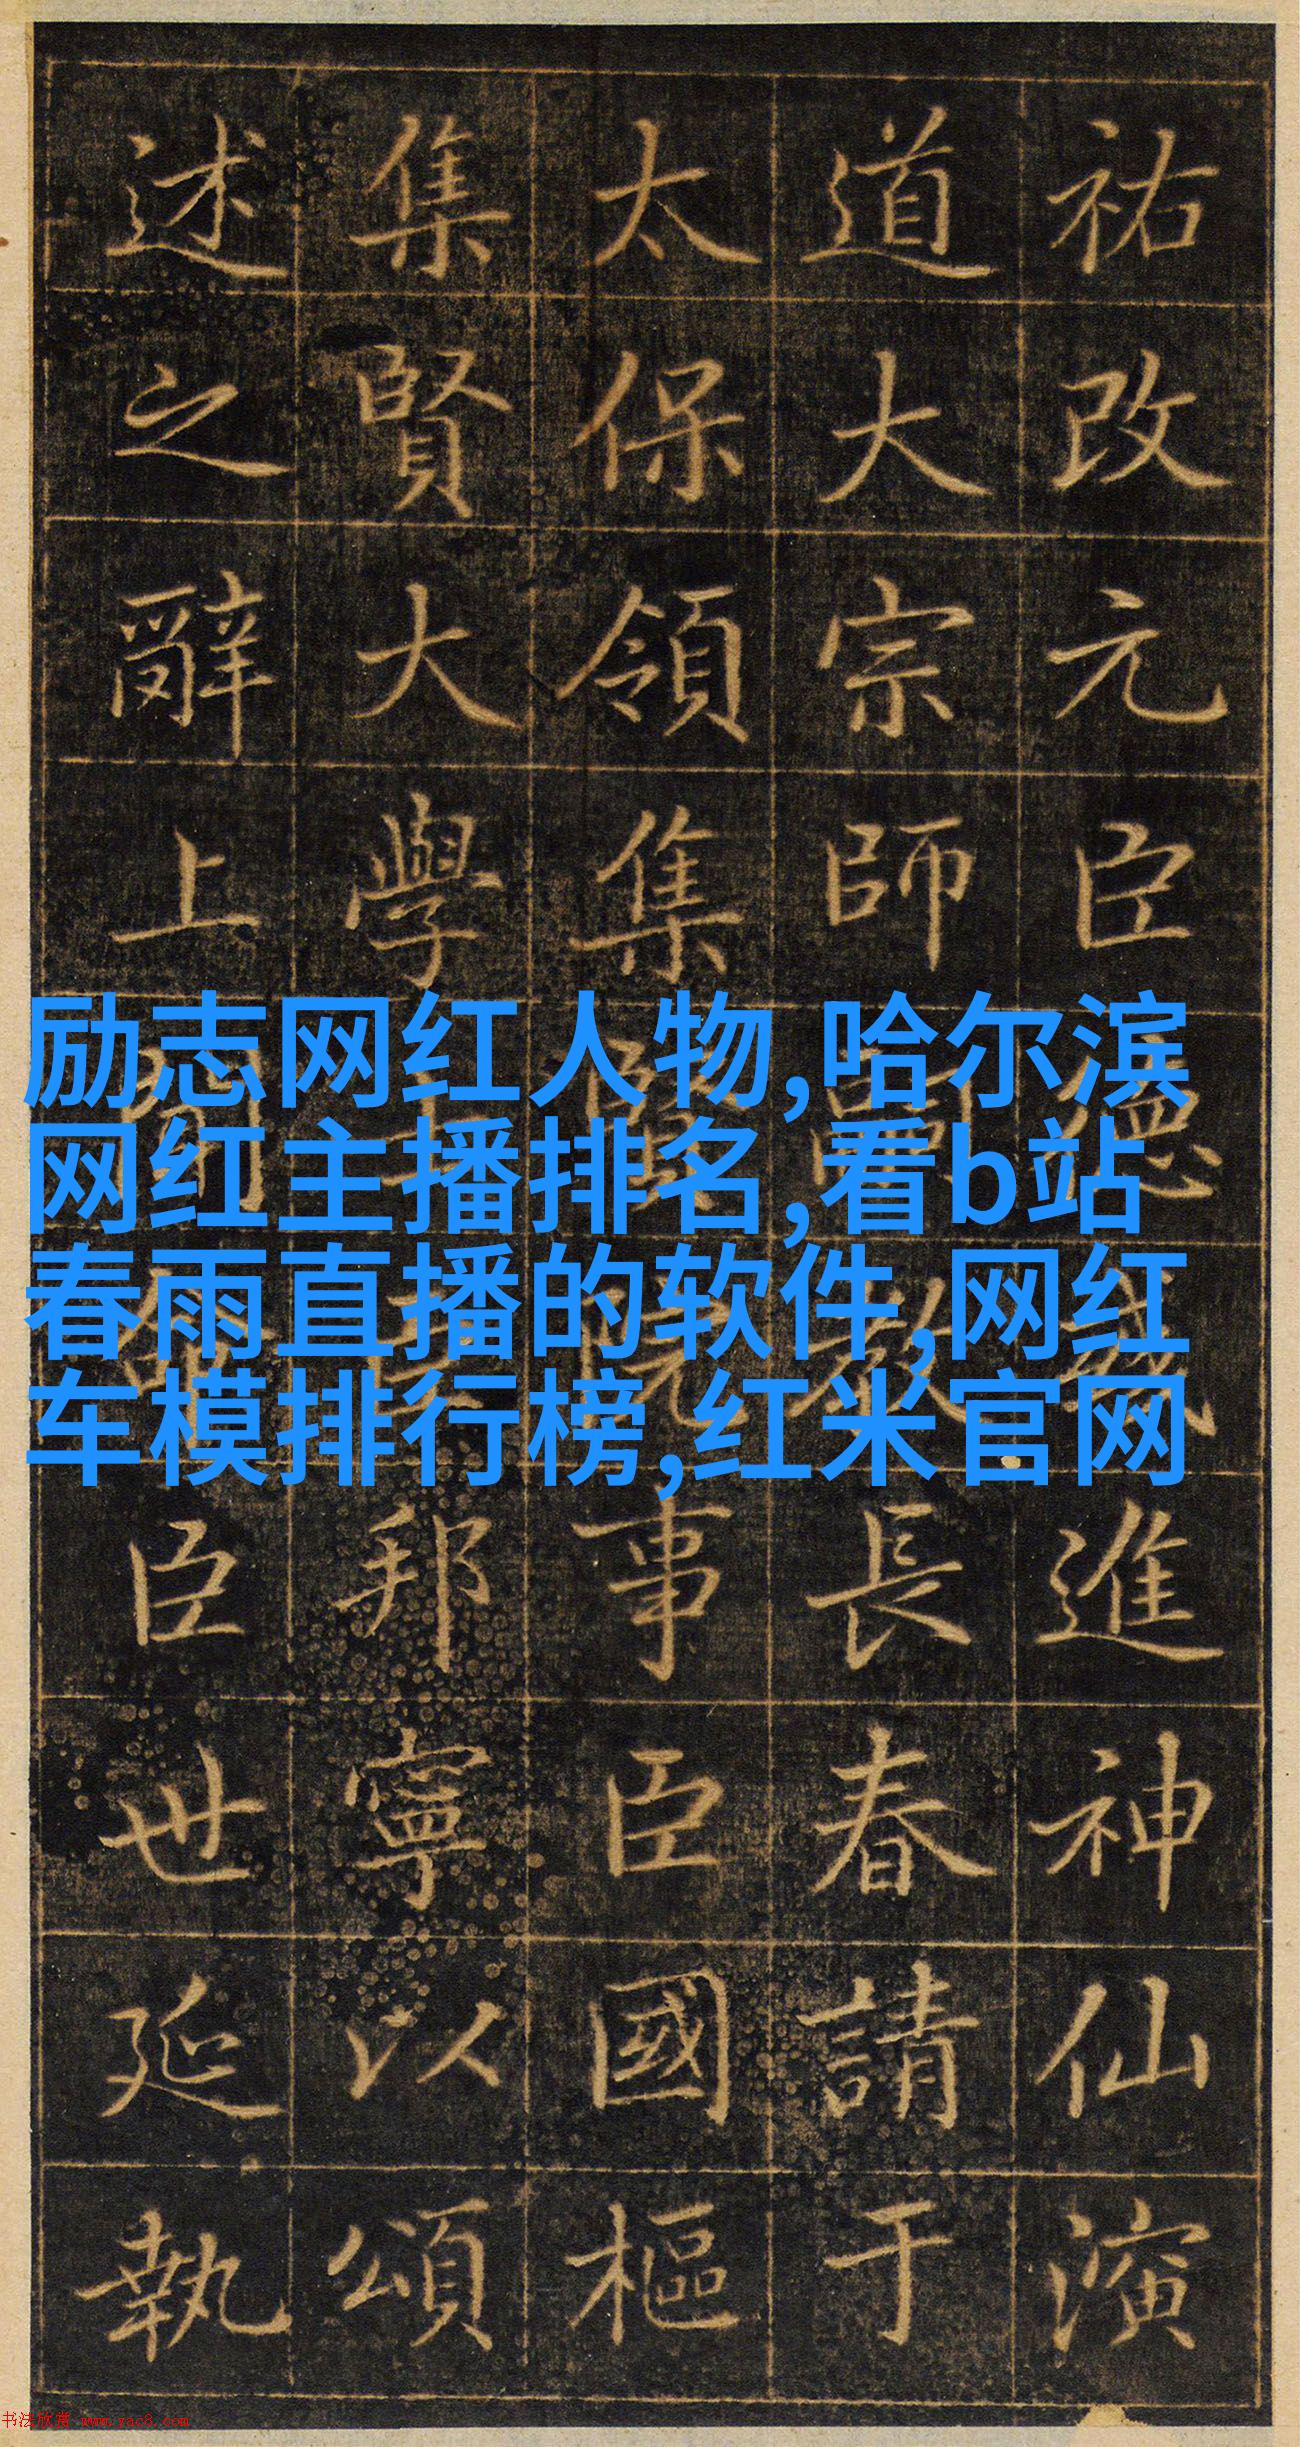 祐改元臣德進神仙演
道大宗師教長春請于
太保領集院事臣國樞
集賢大學士臣邦寧以頌
述之辭上聞命臣世延執
励志网红人物,哈尔滨
网红主播排名,看b站
春雨直播的软件,网红
车模排行榜,红米官网
书法欣赏 www.yac8.com